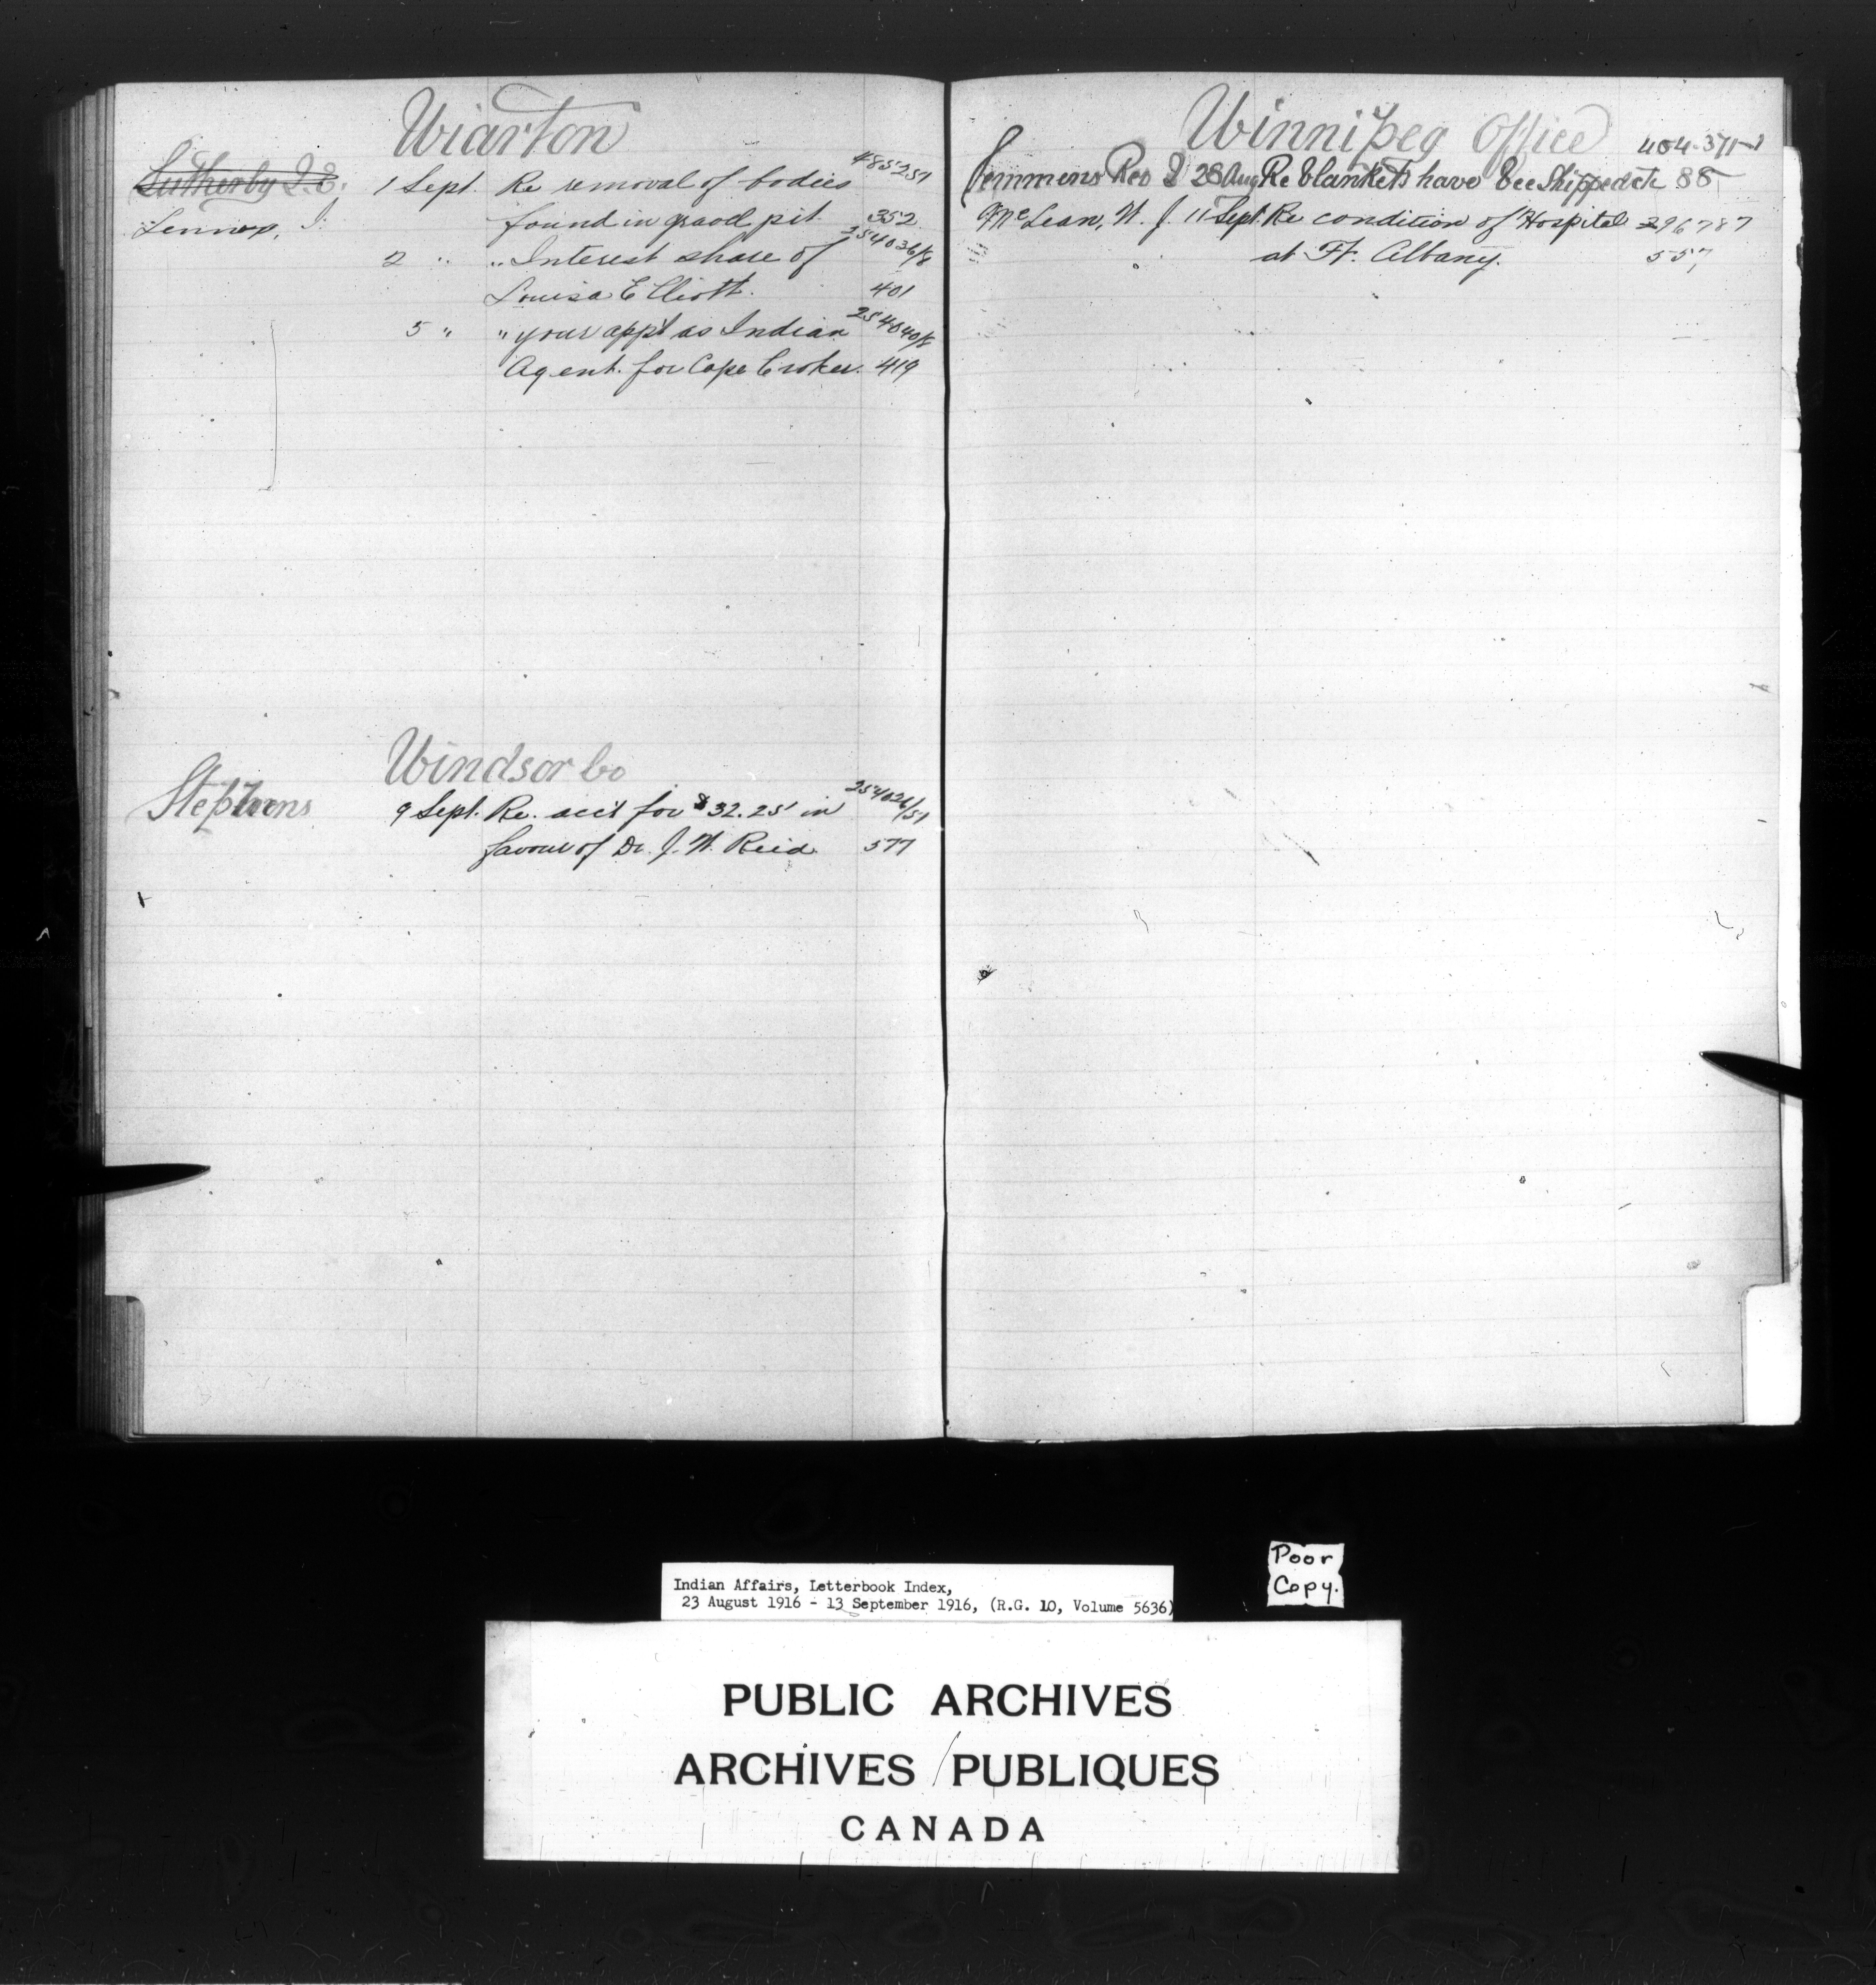 Wiarton
Lutherby I. E. 1 Sept. Re removal of bodies 485257
Lennox, I. found in gravel pit. 352
2 " " Interest share of 254036/8
Louisa Elliott. 401
5 " " your app't as Indian 254040/8
Agent. for Cape Croker. 419
Windsor Co
Stephens 9 Sept. Re. acct for $32.25 in 254026/57
favour of Dr. J. W. Reid 577
Winnipeg Office
Semmens Rev J 28 Aug Re blankets have bee Shipped etc 404.371-1
88
McLean, W. J. 11 Sept. Re condition of Hospital 396787
at Ft. Albany. 557
Indian Affairs, Letterbook Index,
23 August 1916 - 13 September 1916, (R.G. 10, Volume 5636)
Poor
Copy.
PUBLIC ARCHIVES
ARCHIVES PUBLIQUES
CANADA